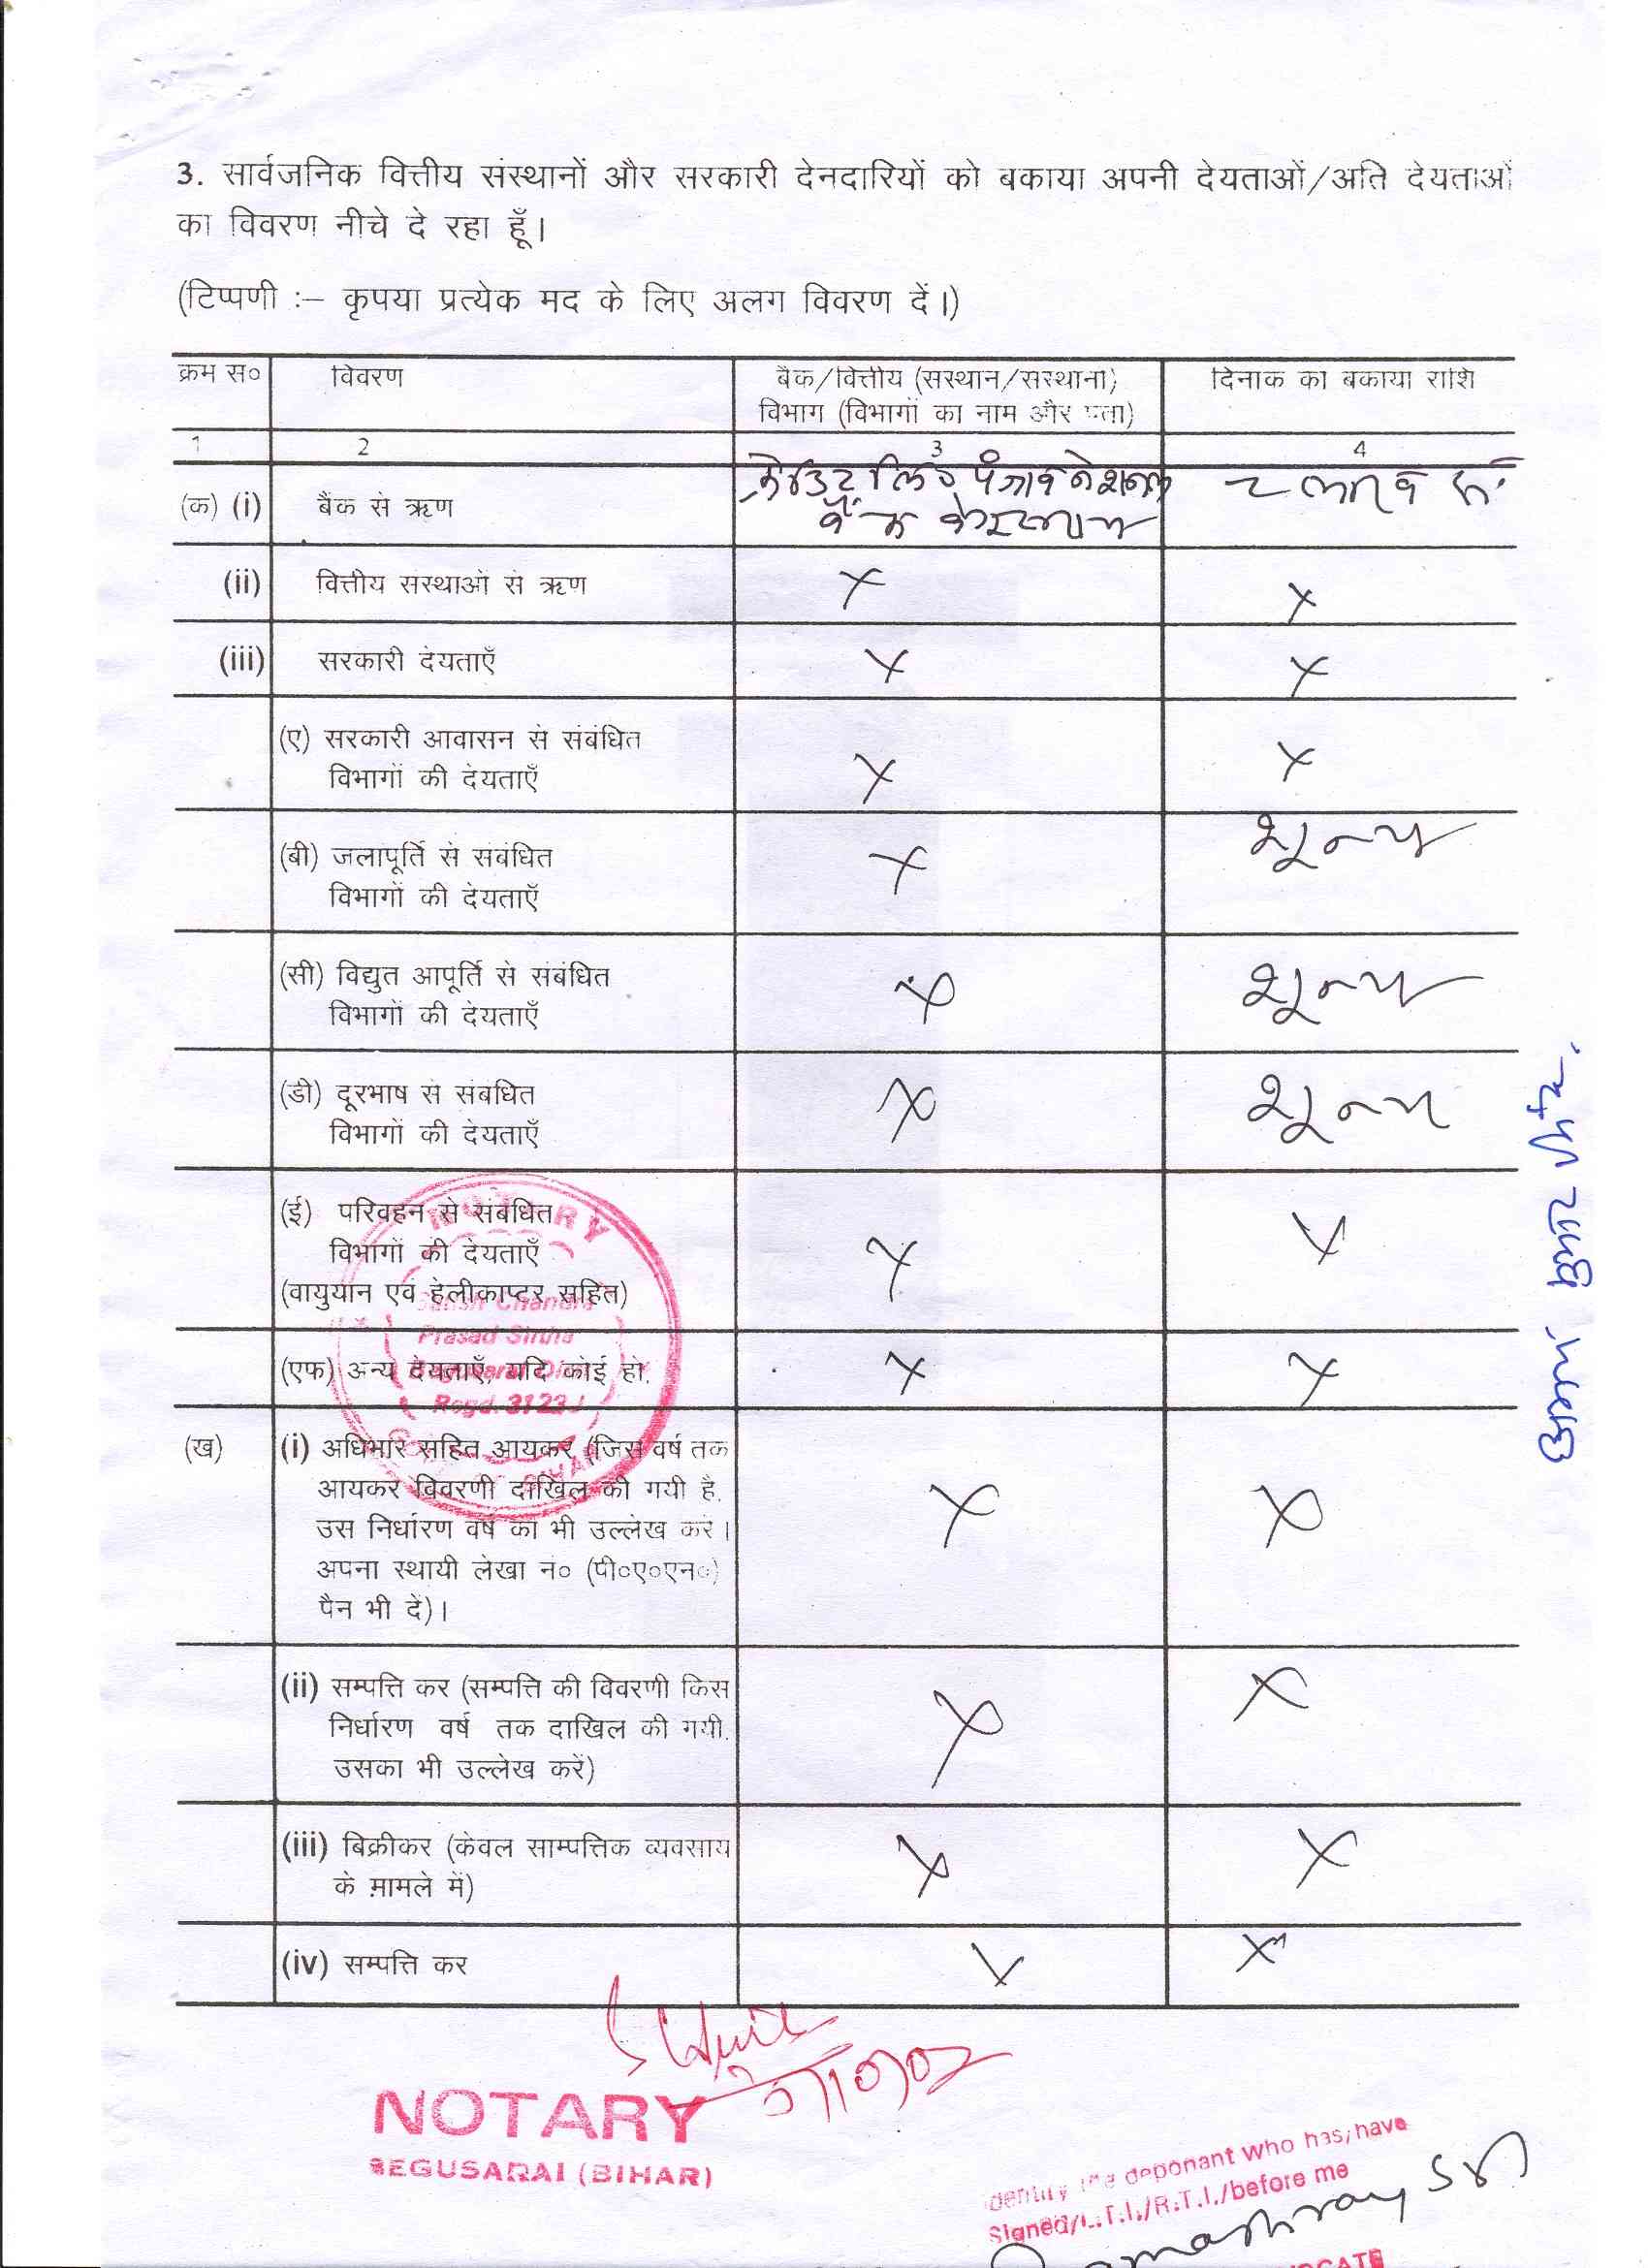 3. सार्वजनिक वित्तीय संस्थानों और सरकारी देनदारियों को बकाया अपनी देयताओं/अति देयताओं
का विवरण नीचे दे रहा हूँ।
(टिप्पणी :– कृपया प्रत्येक मद के लिए अलग विवरण दें।)
क्रम स० विवरण बैंक/वित्तीय (संस्थान/संस्थानों) दिनांक को बकाया राशि
विभाग (विभागों का नाम और पता)
1 2 3 4
क्रेडिट लिं० पंजाब नेशनल
(क) (i) बैंक से ऋण लाख रू.
बैंक
(ii) वित्तीय संस्थाओं से ऋण X X
(iii) सरकारी देयताएँ X X
(ए) सरकारी आवासन से संबंधित
विभागों की देयताएँ X X
(बी) जलापूर्ति से संबंधित X शून्य
विभागों की देयताएँ
(सी) विद्युत आपूर्ति से संबंधित X शून्य
विभागों की देयताएँ
(डी) दूरभाष से संबंधित X शून्य
विभागों की देयताएँ
(ई) परिवहन से संबंधित
विभागों की देयताएँ X X
(वायुयान एवं हेलीकाप्टर सहित)
(एफ) अन्य देयताएँ, यदि कोई हो. X X
(ख) (i) अधिभार सहित आयकर (जिस वर्ष तक
आयकर विवरणी दाखिल की गयी है, X X
उस निर्धारण वर्ष का भी उल्लेख करें।
अपना स्थायी लेखा नं० (पी०ए०एन०)
पैन भी दें)।
(ii) सम्पत्ति कर (सम्पत्ति की विवरणी किस X
निर्धारण वर्ष तक दाखिल की गयी, X
उसका भी उल्लेख करें)
(iii) बिक्रीकर (केवल साम्पत्तिक व्यवसाय X X
के मामले में)
(iv) सम्पत्ति कर X X
NOTARY
Chandra
Prasad Sinha
Regd. 3123
NOTARY
BEGUSARAI (BIHAR)
Identify the deponant who has/have
Signed/L.T.I./R.T.I./before me
कुमार